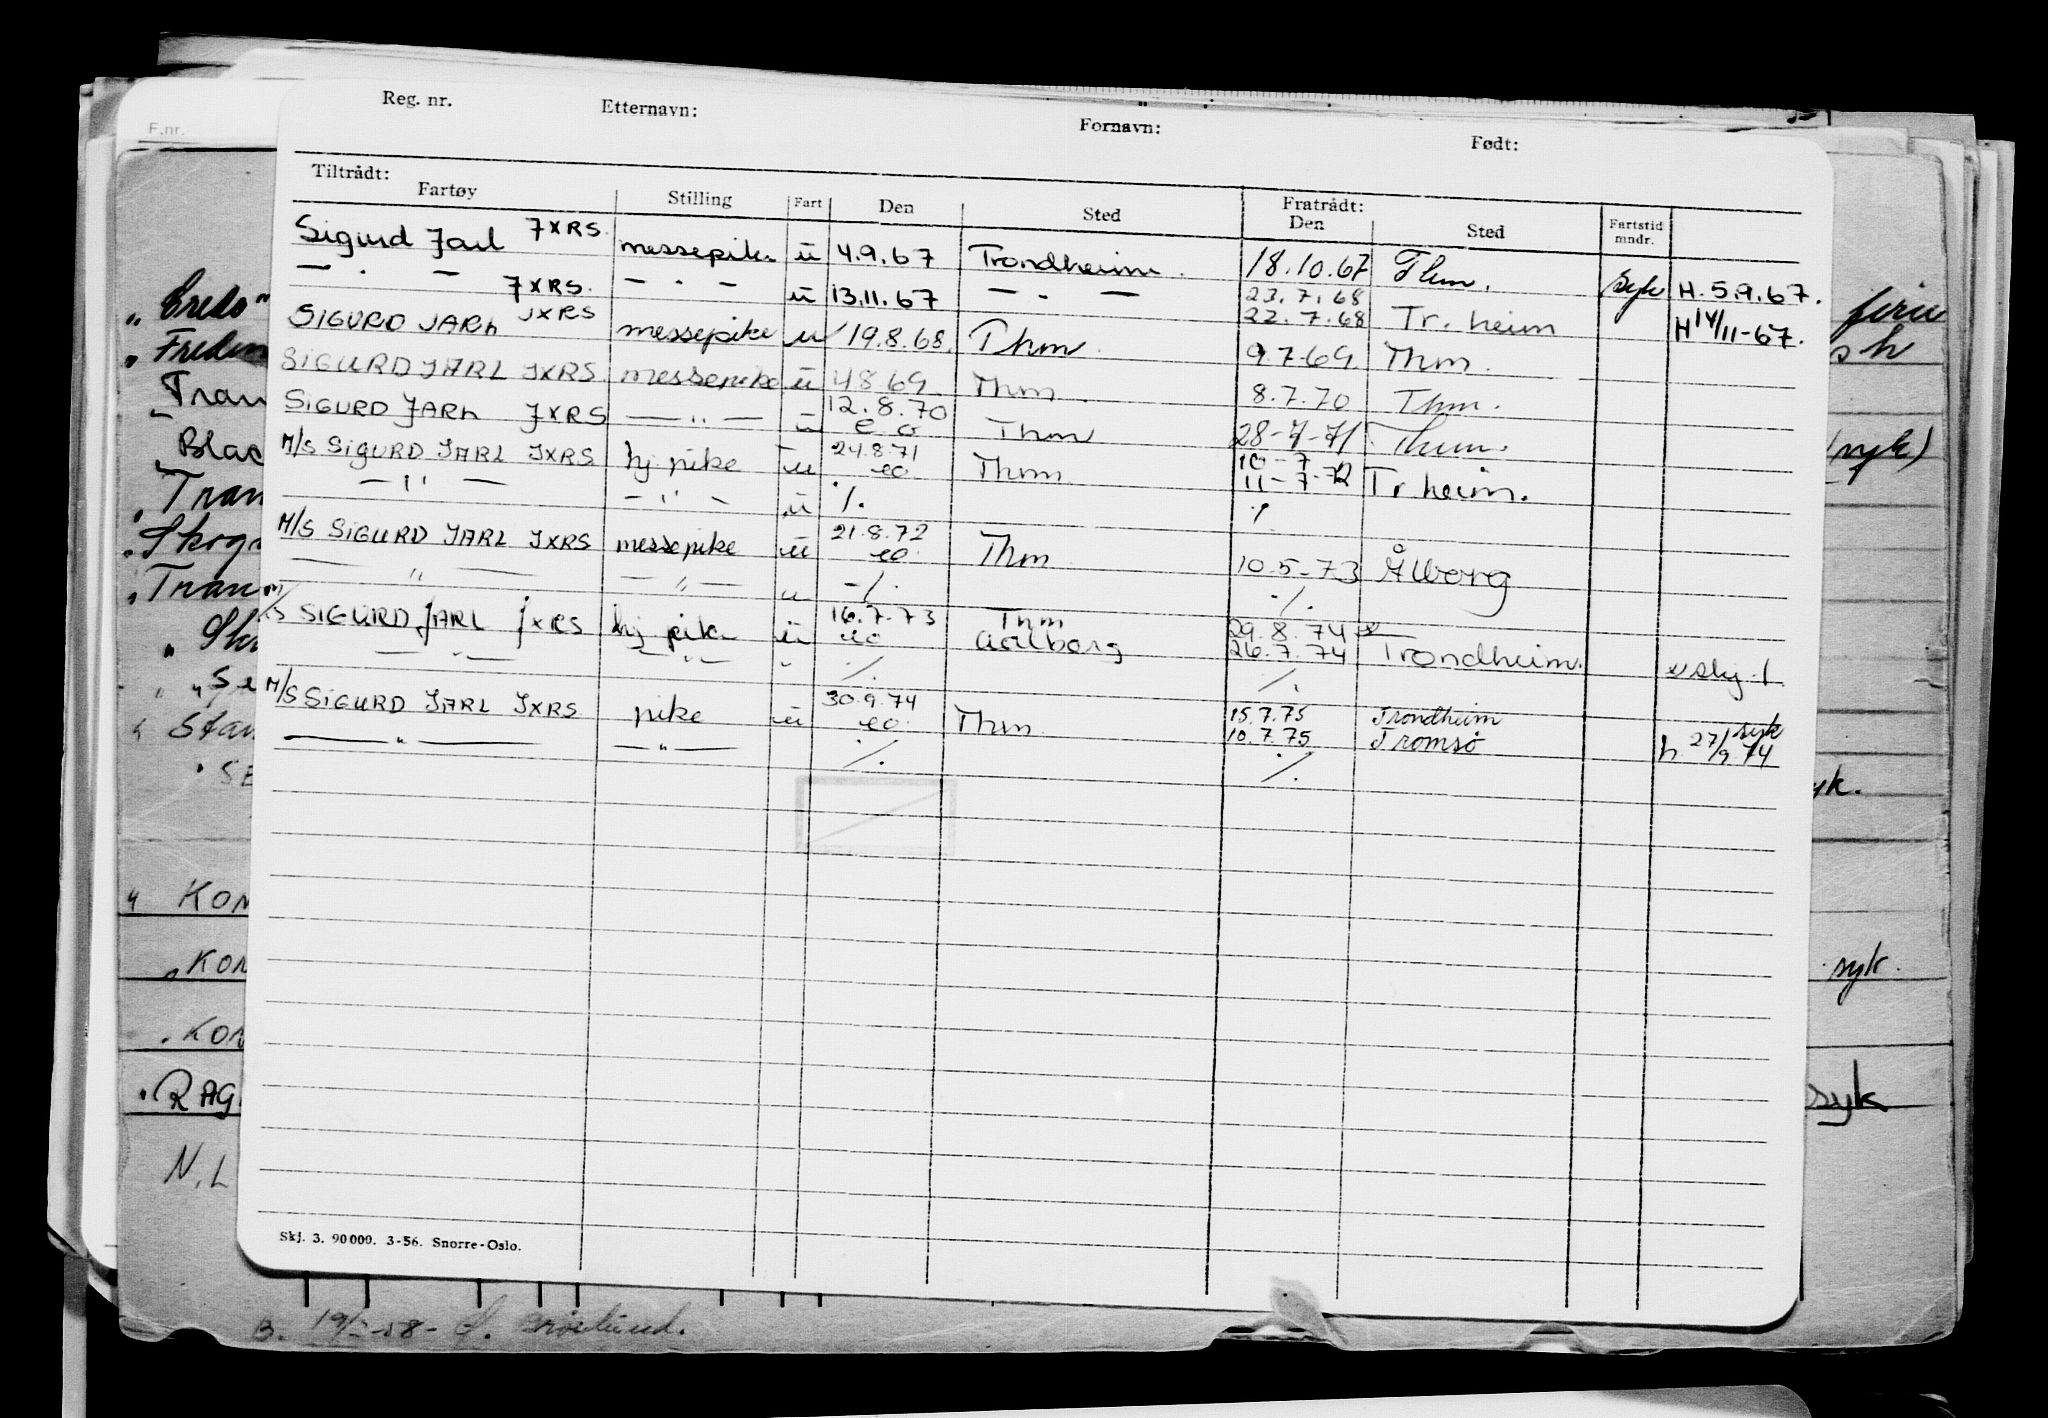 F.nr.
Reg. nr. Etternavn: Fornavn: Født:
Tiltrådt: Fratrådt:
Fartøy Stilling Fart Den Sted Den Sted Fartstid mndr.
Sigurd Jarl JXRS. messepike u 4.9.67 Trondheim. 18.10.67 Thm. syk H. 5.9.67.
— . — JXRS. — . — u 13.11.67 — . — 23.7.68 H 14/11-67.
SIGURD JARL JXRS messepike u 19.8.68. Thm. 22.7.68 Tr. heim
SIGURD JARL JXRS. messepike u 4 8 69 Thm. 9.7.69. Thm.
SIGURD JARL JXRS — " — u 12.8.70 e.o Thm 8.7.70 Thm.
M/S SIGURD JARL JXRS hj. pike u 24.8.71 eo Thm 28-7-71 Thm.
— " — — " — u ./. 10-7
11-7-72 Tr. heim.
M/S SIGURD JARL JXRS messepike u 21.8.72 eo. Thm. ./.
— " — — " — u ./. 10-5-73 Ålborg
M/S SIGURD JARL JXRS hj pike u 16.7.73 eo Thm ./.
— " — — " — - ./. Aalborg 29.8.74
26.7.74 Trondheim.
M/S SIGURD JARL JXRS pike u 30.9.74 eo. Thm. ./.
— " — — " — ./. 15.7.75 Trondheim syk
10.7.75 Tromsø h 27/9 74
./.
Skj. 3. 90000. 3-56. Snorre-Oslo.
"Credo" ferie
"Fredm sh
Tran
Blac (syk)
"Tran
"Skog
"Tran
"Sk
"Se
" Stan
" SE yk.
" KON
"KON syk.
"KON
"RAG syk
N.L
B.